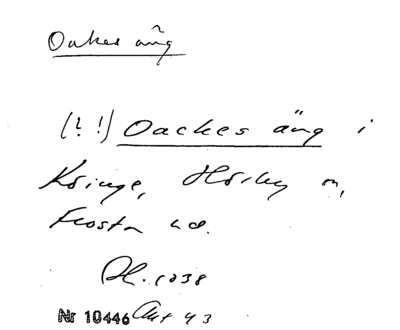 Oakes äng
(?!) Oackes äng i
Köinge, Hörby sn,
Frosta hd.
Dl. 1038
Nr 10446 Akt 43